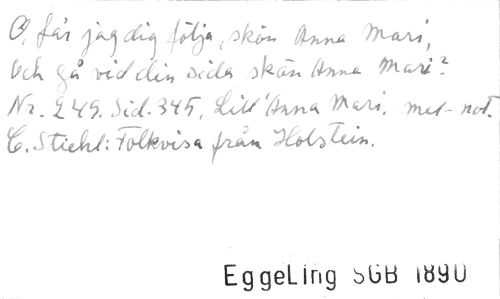 O, får jag dig följa, skön Anna Mari,
Och gå vid din sida skön Anna Mari?
Nr. 249. Sid. 345, Lill' Anna Mari. mel-not.
C. Stiehl: Folkvisa från Holstein.
EggeLing SGB 1890